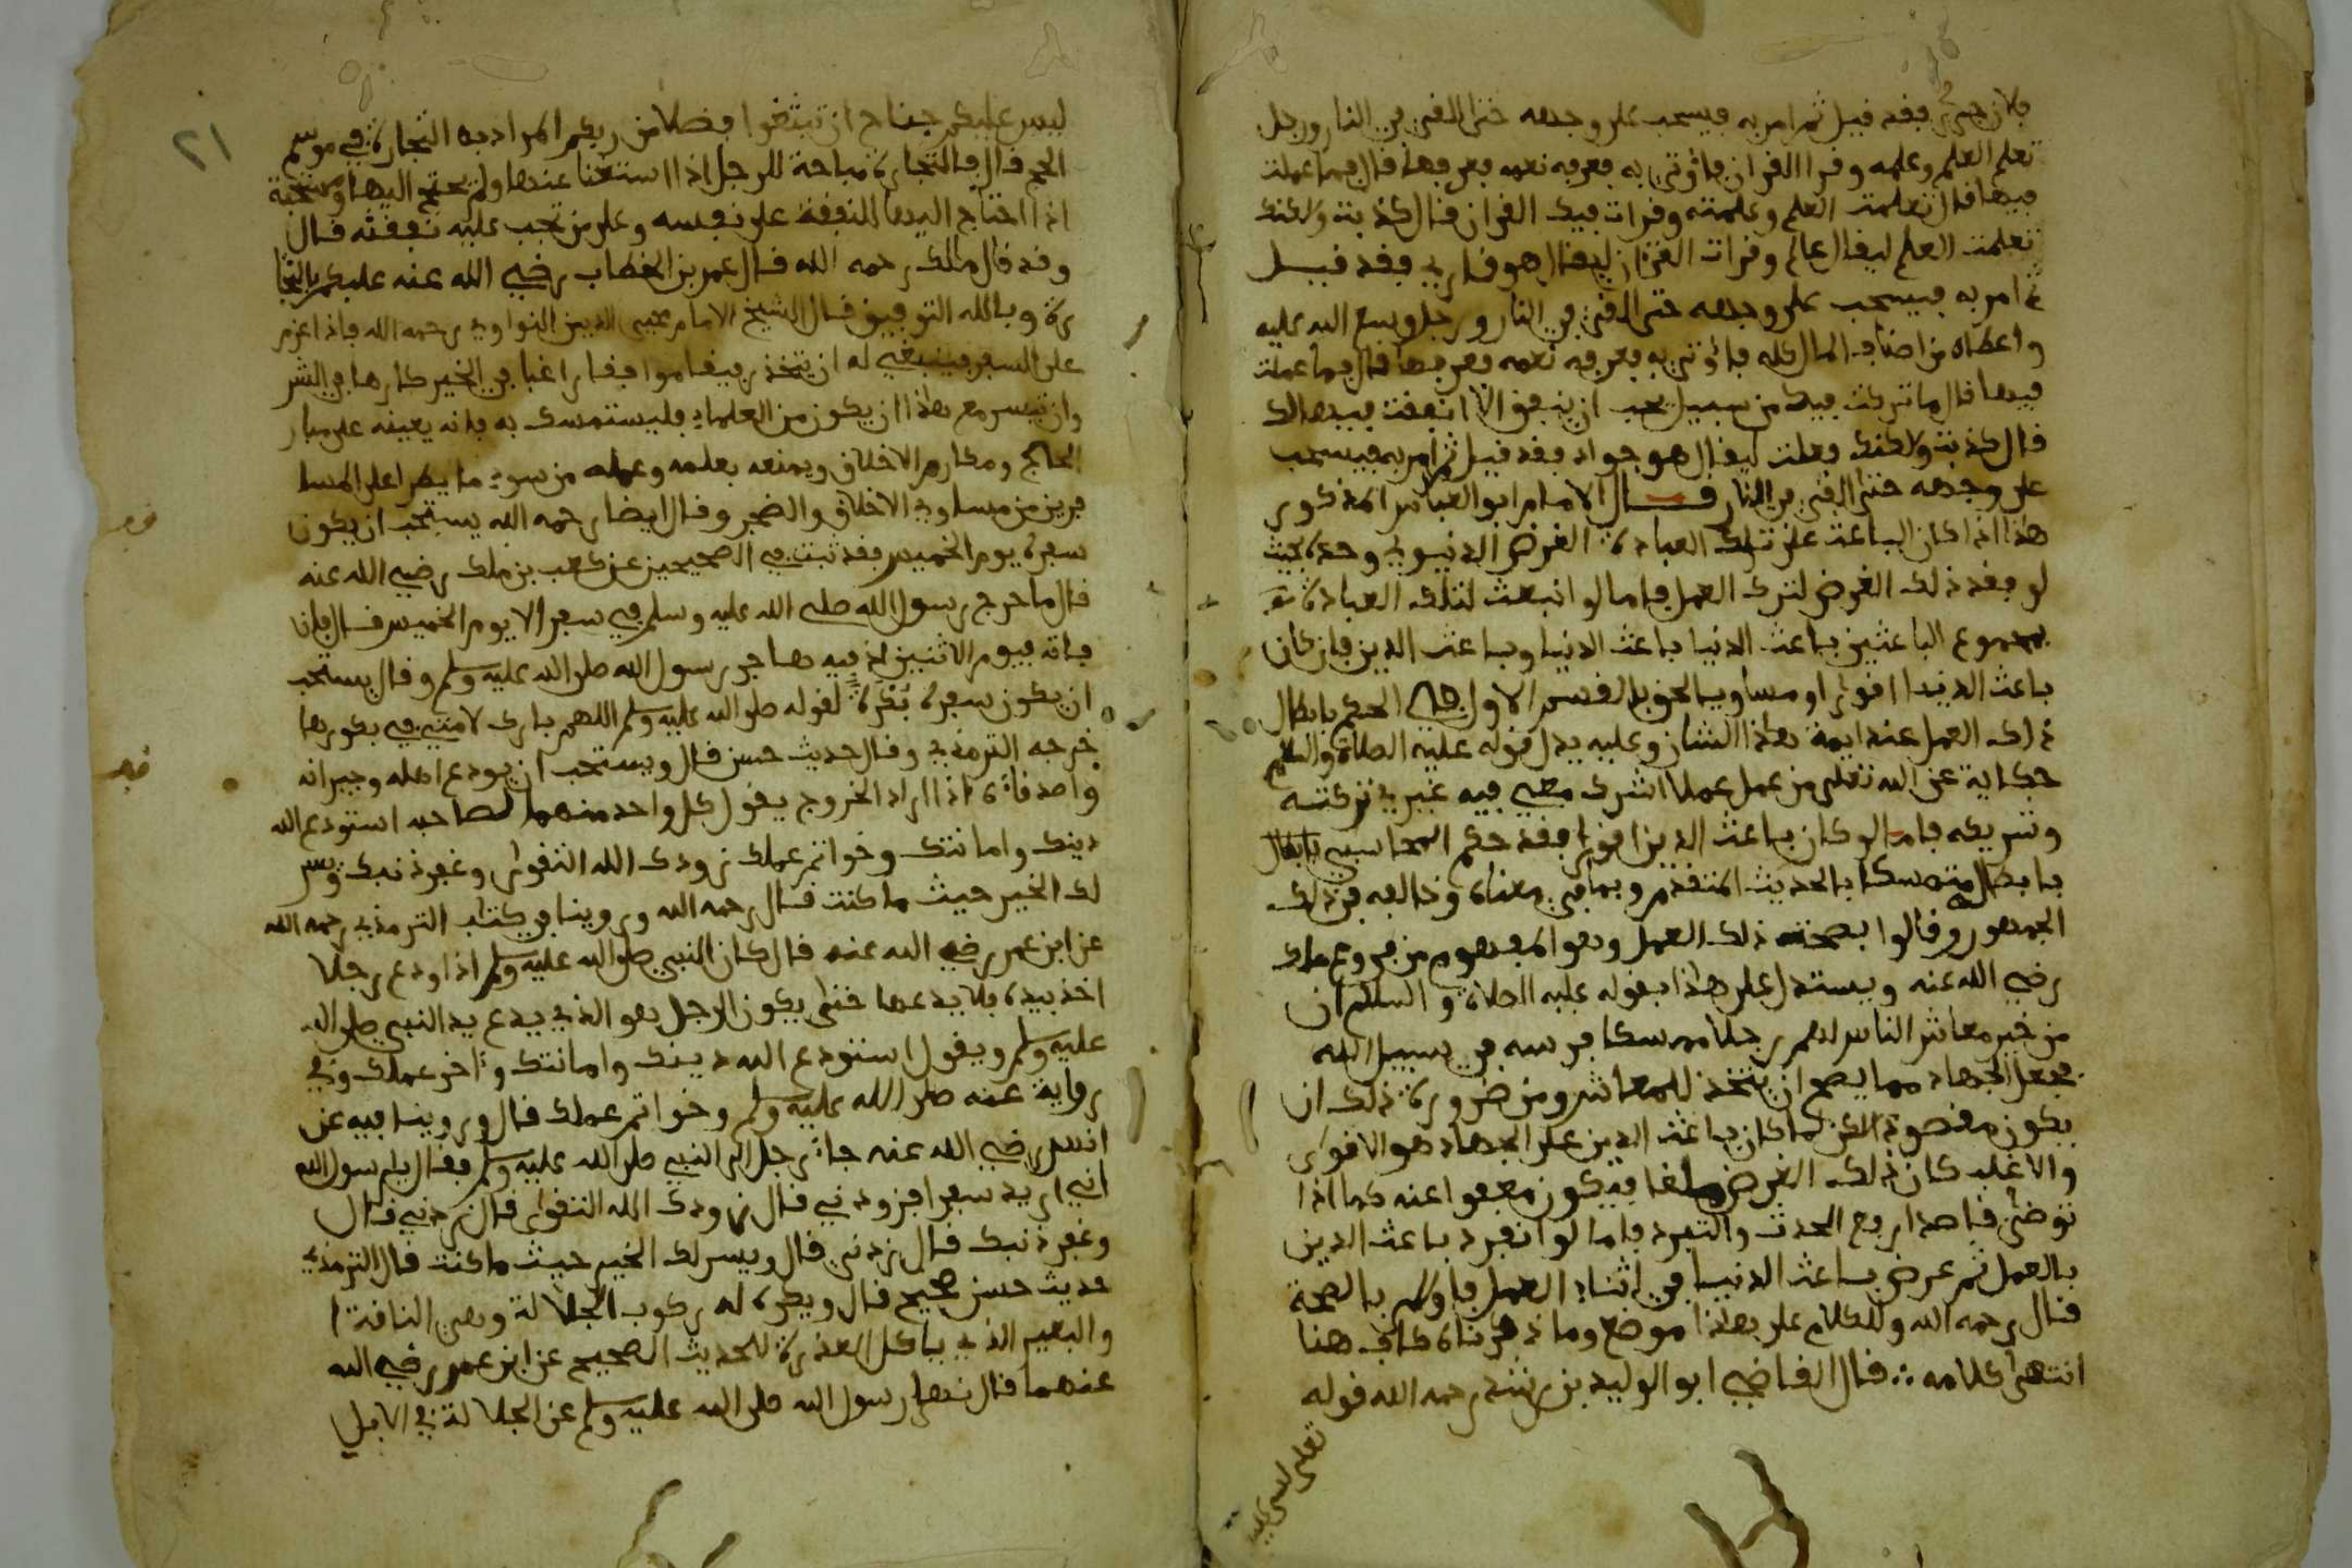 فلان جرىء فقد قيل ثم امر به فيسحب على وجهه حتى القى فى النار ورجل
تعلم العلم وعلمه وقرا القران فاوتى به فعرفه نعمه فعرفها قال فما عملت
فيها قال تعلمت العلم وعلمته وقرات فيك القران قال كذبت ولكنك
تعلمت العلم ليقال عالم وقرات القران ليقال هو قارى فقد قيل
ثم امر به فيسحب على وجهه حتى القى فى النار ورجل وسع الله عليه
واعطاه من اصناف المال كله فاوتى به فعرفه نعمه فعرفها قال فما عملت
فيها قال ما تركت فيك من سبيل تحب ان ينفق الا انفقت فيها لك
قال كذبت ولكنك فعلت ليقال هو جواد فقد قيل ثم امر به فيسحب
على وجهه حتى القى فى النار قال الامام ابو العباس المذكور
هذا اذا كان الباعث على تلك العبادة الغرض الدنيوى وحده بحيث
لو فقد ذلك الغرض لترك العمل فاما لو انبعث لتلك العبادة
بمجموع الباعثين باعث الدنيا وباعث الدين فان كان
باعث الدنيا اقوى او مساويا لحق بالقسم الاول فى الحكم بابطال
ذلك العمل عند ايمة هذا الشان وعليه يدل قوله عليه الصلاة والسلام
حكاية عن الله تعلى من عمل عملا اشرك معى فيه غيرى تركته
وشريكه فاما لو كان باعث الدين اقوى فقد حكم المحاسبى بابطال
بابطاله متمسكا بالحديث المتقدم وبما فى معناه وخالفه فى ذلك
الجمهور وقالوا بصحة ذلك العمل وهو المفهوم من فروع مالك
رضى الله عنه ويستدل على هذا بقوله عليه الصلاة والسلام ان
من خير معاش الناس لهم رجلا ممسكا فرسه فى سبيل الله
فجعل الجهاد مما يصح ان يتخذ للمعاش ومن ضرورة ذلك ان
يكون مقصودا لكن لما كان باعث الدين على الجهاد هو الاقوى
والاغلب كان ذلك الغرض ملغا فيكون معفوا عنه كما اذا
توضى قاصدا رفع الحدث والتبرد فاما لو انفرد باعث الدين
بالعمل ثم عرض باعث الدنيا فى اثناء العمل فاولى بالصحة
قال رحمه الله وللكلام على هذا موضع وما ذكرناه كاف هنا
انتهى كلامه ∴ قال القاضى ابو الوليد بن رشد رحمه الله قوله
تعلى ليس عليكم
ليس عليكم جناح ان تبتغوا فضلا من ربكم المراد به التجارة فى موسم
الحج قال فالتجارة مباحة للرجل اذا استغنا عنها ولم يحتج اليها ومستحبة
اذا احتاج اليها للنفقة على نفسه وعلى من تجب عليه نفقته قال
وقد قال مالك رحمه الله قال عمر بن الخطاب رضى الله عنه عليكم بالتجا
رة وبالله التوفيق قال الشيخ الامام محيى الدين النواوى رحمه الله فاذا عزم
على السفر فينبغى له ان يتخذ رفيقا موافقا راغبا فى الخير كارها فى الشر
وان تيسر مع هذا ان يكون من العلماء فليستمسك به فانه يعينه على مبار
الحاج ومكارم الاخلاق ويمنعه بعلمه وعمله من سوء ما يطرا على المسا
فرين من مساوى الاخلاق والضجر وقال ايضا رحمه الله يستحب ان يكون
سفره يوم الخميس فقد ثبت فى الصحيحين عن كعب بن ملك رضى الله عنه
قال ما خرج رسول الله صلى الله عليه وسلم فى سفر الا يوم الخميس قال فان
فاته فيوم الاثنين اذ فيه هاجر رسول الله صلى الله عليه وسلم وقال يستحب
ان يكون سفره بكرة لقوله صلى الله عليه وسلم اللهم بارك لامتى فى بكورها
خرجه الترمذى وقال حديث حسن قال ويستحب ان يودع اهله وجيرانه
واصدقاءه اذا اراد الخروج يقول كل واحد منهما لصاحبه استودع الله
دينك وامانتك وخواتم عملك زودك الله التقوى وغفر ذنبك ويسر
لك الخير حيث ما كنت قال رحمه الله وروينا فى كتاب الترمذى رحمه الله
عن ابن عمر رضى الله عنه قال كان النبى صلى الله عليه وسلم اذا ودع رجلا
اخذ بيده فلا يدعها حتى يكون الرجل هو الذى يدع يد النبى صلى الله
عليه وسلم ويقول استودع الله دينك وامانتك واخر عملك وفى
رواية عنه صلى الله عليه وسلم وخواتم عملك قال وروينا فيه عن
انس رضى الله عنه جاء رجل الى النبى صلى الله عليه وسلم فقال يا رسول الله
انى اريد سفرا فزودنى قال زودك الله التقوى قال زدنى قال
وغفر ذنبك قال زدنى قال ويسر لك الخير حيث ما كنت قال الترمذى
حديث حسن صحيح قال ويكره له ركوب الجلالة وهى الناقة
والبعير الذى ياكل العذرة للحديث الصحيح عن ابن عمر رضى الله
عنهما قال نهى رسول الله صلى الله عليه وسلم عن الجلالة فى الابل